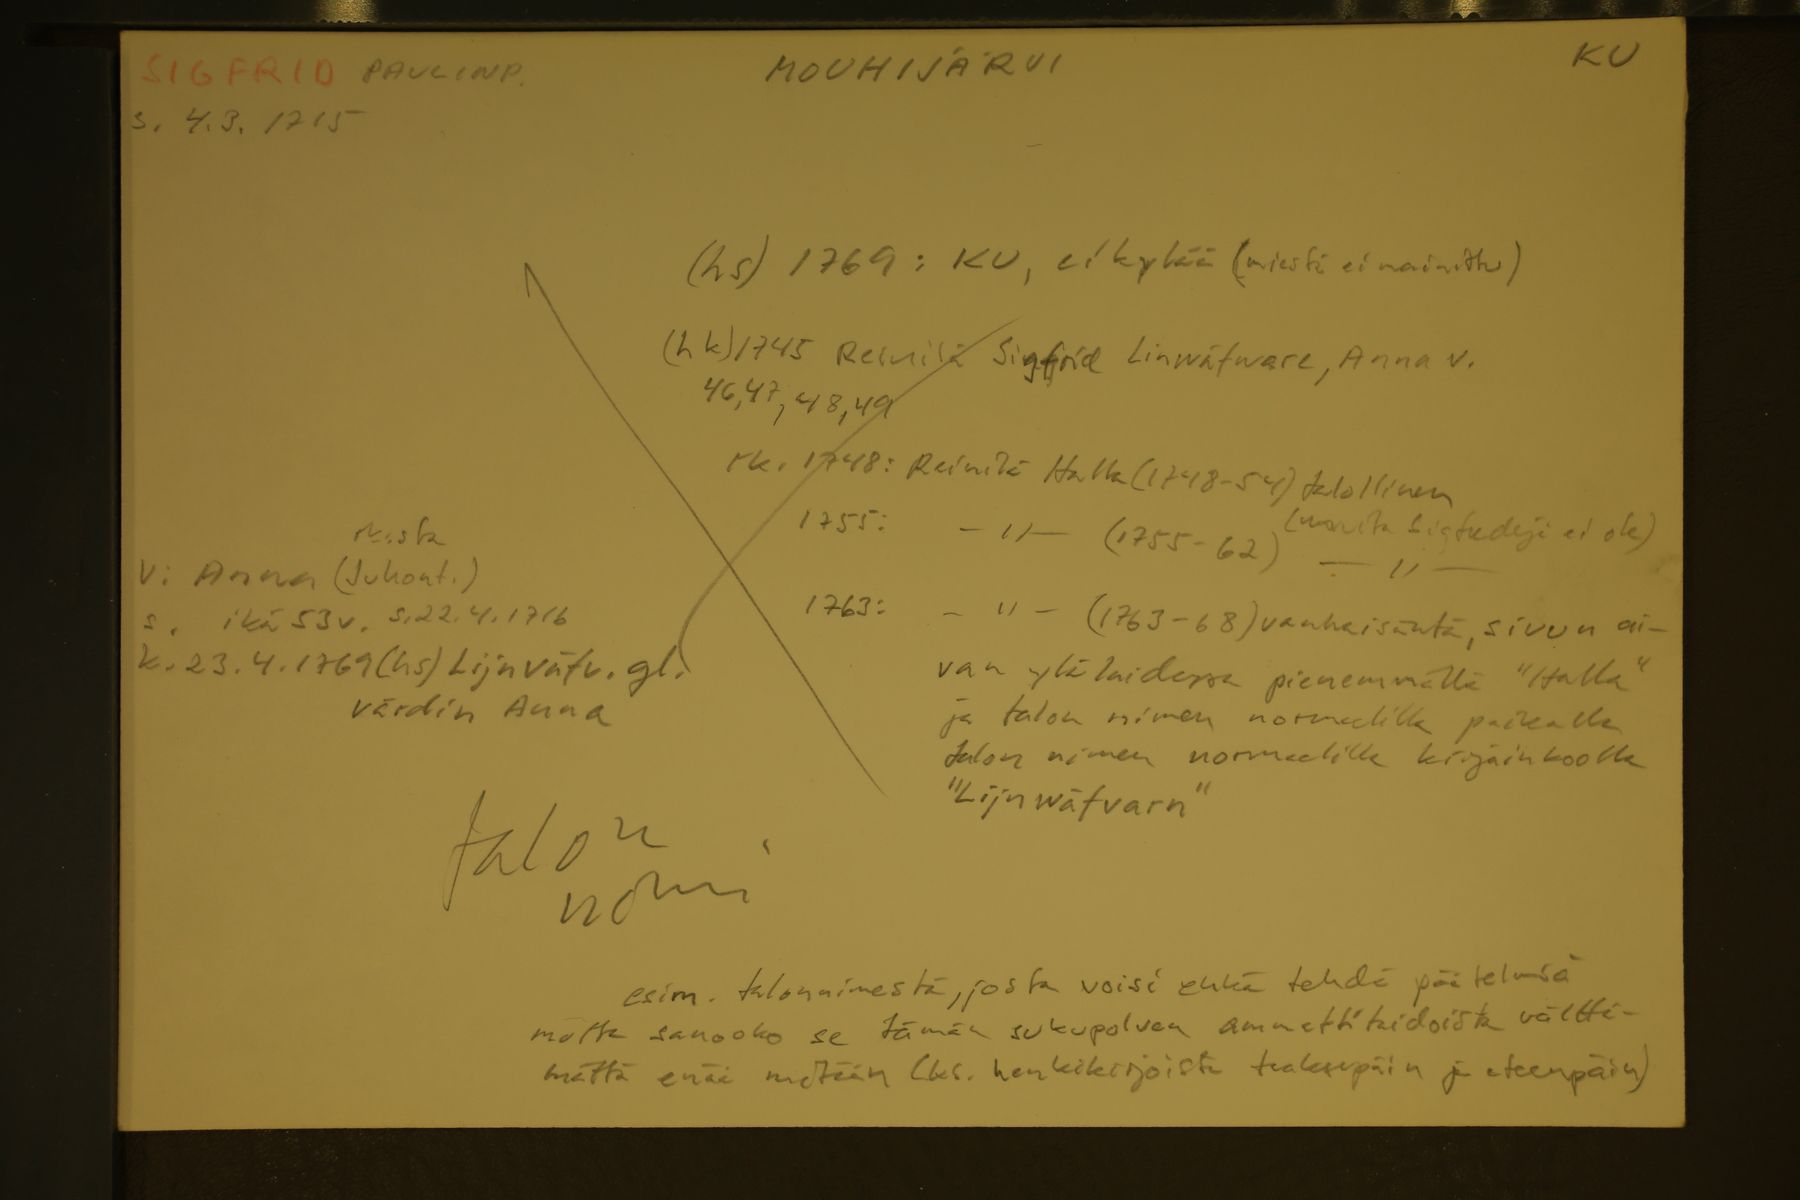 SIGFRID PAULINP. MOUHIJÄRVI KU
s. 4.3. 1715
(hs) 1769: KU, ei kylää (miestä ei mainittu)
(hk) 1745 Reinilä Sigfrid Linwäfware, Anna v.
46,47,48,49
rk. 1748: Reinilä Halla (1748-54) talollinen
(muita Sigfredejä ei ole)
1755: -"- (1755-62) -"-
1763: -"- (1763-68) vanhaisäntä, sivun ai-
van ylälaidassa pienemmällä "Halla"
ja talon nimen normaalilla paikalla
talon nimen normaalilla kirjainkoolla
"Lijnwäfvarn"
rk:sta
V: Anna (Juhont.)
s. ikä 53v. s.22.4.1716
k. 23.4.1769 (hs) Lijnväfv. gl.
värdin Anna
talon
nimi
esim. talonnimestä, josta voisi ehkä tehdä päätelmiä
mutta sanooko se tämän sukupolven ammattitaidoista vältti-
mättä enää mitään (ks. henkikirjoista taaksepäin ja eteenpäin)